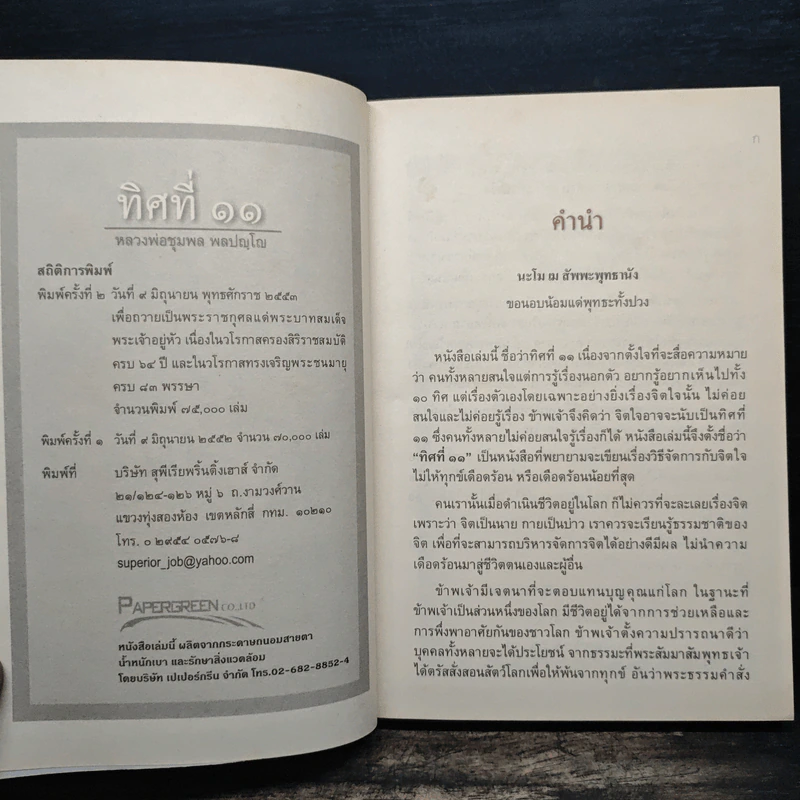 ทิศที่ ๑๑
หลวงพ่อชุมพล พลปญฺโญ
สถิติการพิมพ์
พิมพ์ครั้งที่ ๒ วันที่ ๙ มิถุนายน พุทธศักราช ๒๕๕๓
เพื่อถวายเป็นพระราชกุศลแด่พระบาทสมเด็จ
พระเจ้าอยู่หัว เนื่องในวโรกาสครองสิริราชสมบัติ
ครบ ๖๔ ปี และในวโรกาสทรงเจริญพระชนมายุ
ครบ ๘๓ พรรษา
จำนวนพิมพ์ ๗๕,๐๐๐ เล่ม
พิมพ์ครั้งที่ ๑ วันที่ ๙ มิถุนายน ๒๕๕๒ จำนวน ๗๐,๐๐๐ เล่ม
พิมพ์ที่ บริษัท สุพีเรียพริ้นติ้งเฮาส์ จำกัด
๒๑/๑๒๔-๑๒๖ หมู่ ๖ ถ.งามวงศ์วาน
แขวงทุ่งสองห้อง เขตหลักสี่ กทม. ๑๐๒๑๐
โทร. ๐ ๒๙๕๔ ๐๕๗๖-๘
superior_job@yahoo.com
PAPERGREEN CO.,LTD
หนังสือเล่มนี้ ผลิตจากกระดาษถนอมสายตา
น้ำหนักเบา และรักษาสิ่งแวดล้อม
โดยบริษัท เปเปอร์กรีน จำกัด โทร.02-682-8852-4
ก
คำนำ
นะโม เม สัพพะพุทธานัง
ขอนอบน้อมแด่พุทธะทั้งปวง
หนังสือเล่มนี้ ชื่อว่าทิศที่ ๑๑ เนื่องจากตั้งใจที่จะสื่อความหมาย
ว่า คนทั้งหลายสนใจแต่การรู้เรื่องนอกตัว อยากรู้อยากเห็นไปทั้ง
๑๐ ทิศ แต่เรื่องตัวเองโดยเฉพาะอย่างยิ่งเรื่องจิตใจนั้น ไม่ค่อย
สนใจและไม่ค่อยรู้เรื่อง ข้าพเจ้าจึงคิดว่า จิตใจอาจจะนับเป็นทิศที่
๑๑ ซึ่งคนทั้งหลายไม่ค่อยสนใจรู้เรื่องก็ได้ หนังสือเล่มนี้จึงตั้งชื่อว่า
“ทิศที่ ๑๑” เป็นหนังสือที่พยายามจะเขียนเรื่องวิธีจัดการกับจิตใจ
ไม่ให้ทุกข์เดือดร้อน หรือเดือดร้อนน้อยที่สุด
คนเรานั้นเมื่อดำเนินชีวิตอยู่ในโลก ก็ไม่ควรที่จะละเลยเรื่องจิต
เพราะว่า จิตเป็นนาย กายเป็นบ่าว เราควรจะเรียนรู้ธรรมชาติของ
จิต เพื่อที่จะสามารถบริหารจัดการจิตได้อย่างดีมีผล ไม่นำความ
เดือดร้อนมาสู่ชีวิตตนเองและผู้อื่น
ข้าพเจ้ามีเจตนาที่จะตอบแทนบุญคุณแก่โลก ในฐานะที่
ข้าพเจ้าเป็นส่วนหนึ่งของโลก มีชีวิตอยู่ได้จากการช่วยเหลือและ
การพึ่งพาอาศัยกันของชาวโลก ข้าพเจ้าตั้งความปรารถนาดีว่า
บุคคลทั้งหลายจะได้ประโยชน์ จากธรรมะที่พระสัมมาสัมพุทธเจ้า
ได้ตรัสสั่งสอนสัตว์โลกเพื่อให้พ้นจากทุกข์ อันว่าพระธรรมคำสั่ง